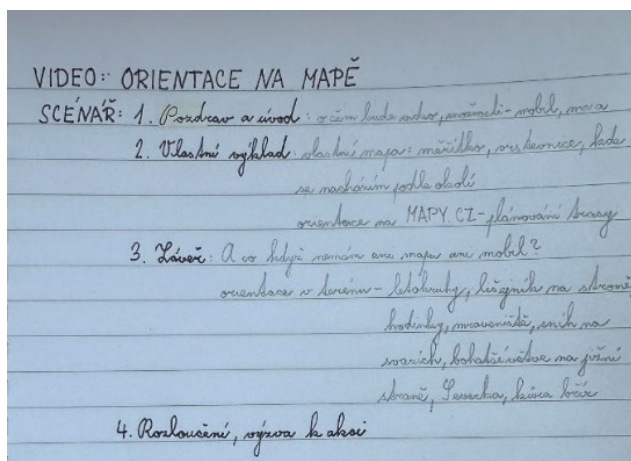 VIDEO: ORIENTACE NA MAPĚ
SCÉNÁŘ: 1. Pozdrav a úvod: o čem bude video, možnosti - mobil, mapa
2. Vlastní výklad: vlastní mapa: měřítko, vrstevnice, kde
se nacházím podle okolí
orientace na MAPY.CZ - plánování trasy
3. Závěr: A co když nemám ani mapu ani mobil?
orientace v terénu - letokruhy, lišejník na stromě
hodinky, mraveniště, sníh na
svazích, bohatší větve na jižní
straně, Severka, kůra bříz
4. Rozloučení, výzva k akci